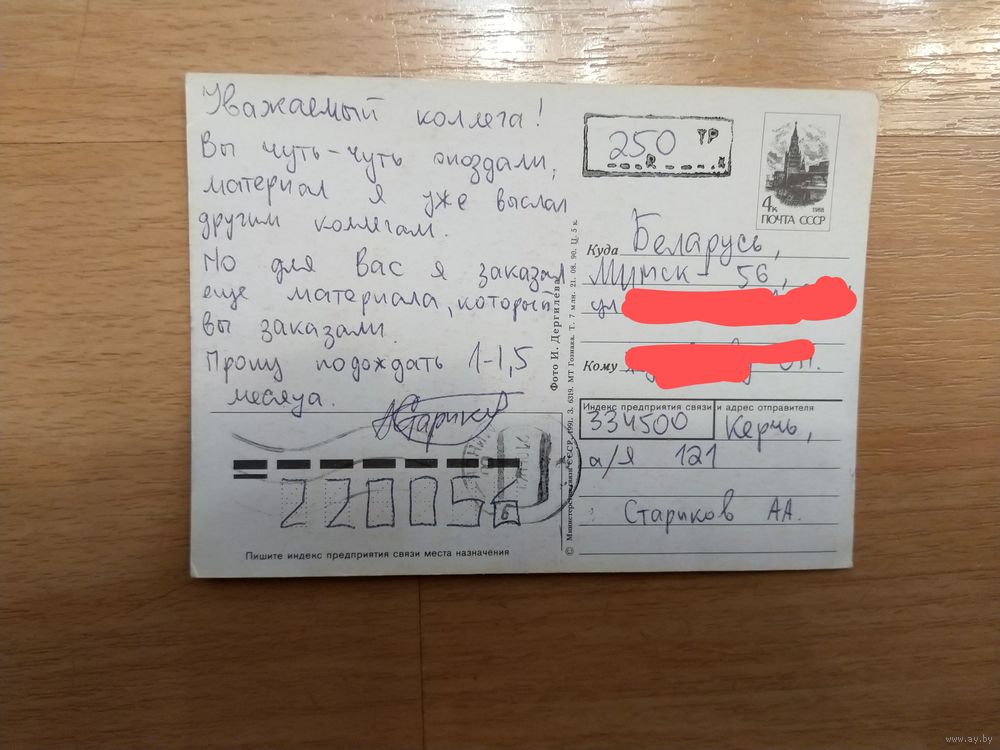 Уважаемый коллега!
Вы чуть-чуть опоздали,
материал я уже выслал
другим коллегам.
Но для Вас я заказал
еще материала, который
вы заказали.
Прошу подождать 1-1,5
месяца.
220056
Пишите индекс предприятия связи места назначения
© Министерство связи СССР, 1991. З. 6319. МТ Гознака. Т. 7 млн. 21. 08. 90. Ц. 5 к.
Фото И. Дергилёва
250 ТР
4к
1988
ПОЧТА СССР
Куда Беларусь,
Минск - 56,
ул
Кому
Индекс предприятия связи и адрес отправителя
334500 Керчь,
а/я 121
Стариков АА.
www.ay.by